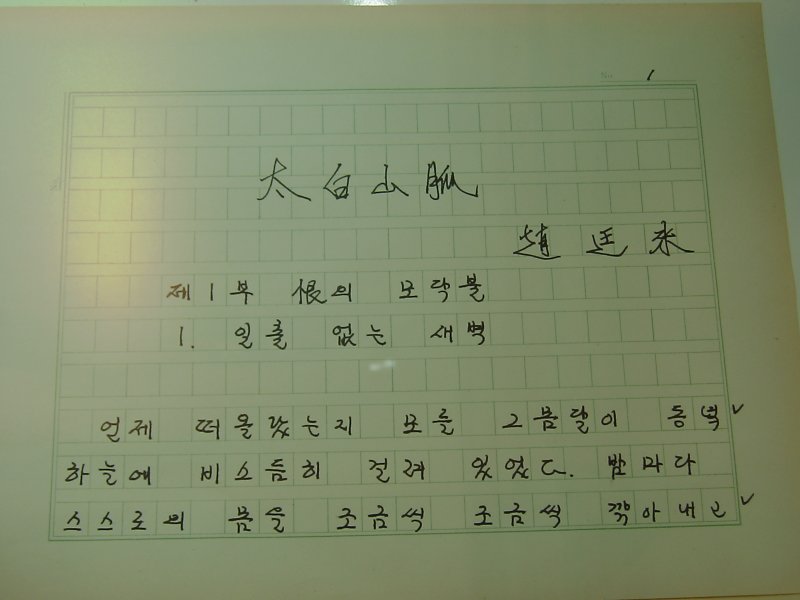 1
太白山脈
趙廷來
제1부 恨의 모닥불
1. 일출 없는 새벽
언제 떠올랐는지 모를 그믐달이 동녘
하늘에 비스듬히 걸려 있었다. 밤마다
스스로의 몸을 조금씩 조금씩 깎아내고